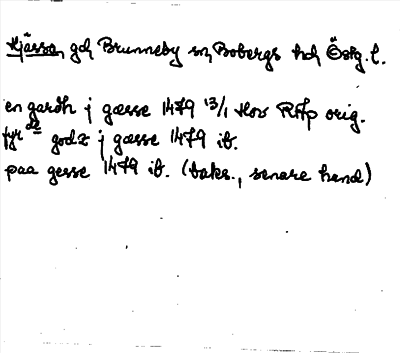 Hjässe, gd, Brunneby sn, Bobergs hd, Östg. l.
en gardh j gæsse 1479 13/1 Hov RAp orig.
godz j gæsse 1479 ib.
paa gesse 1479 ib. (baks., senare hand)